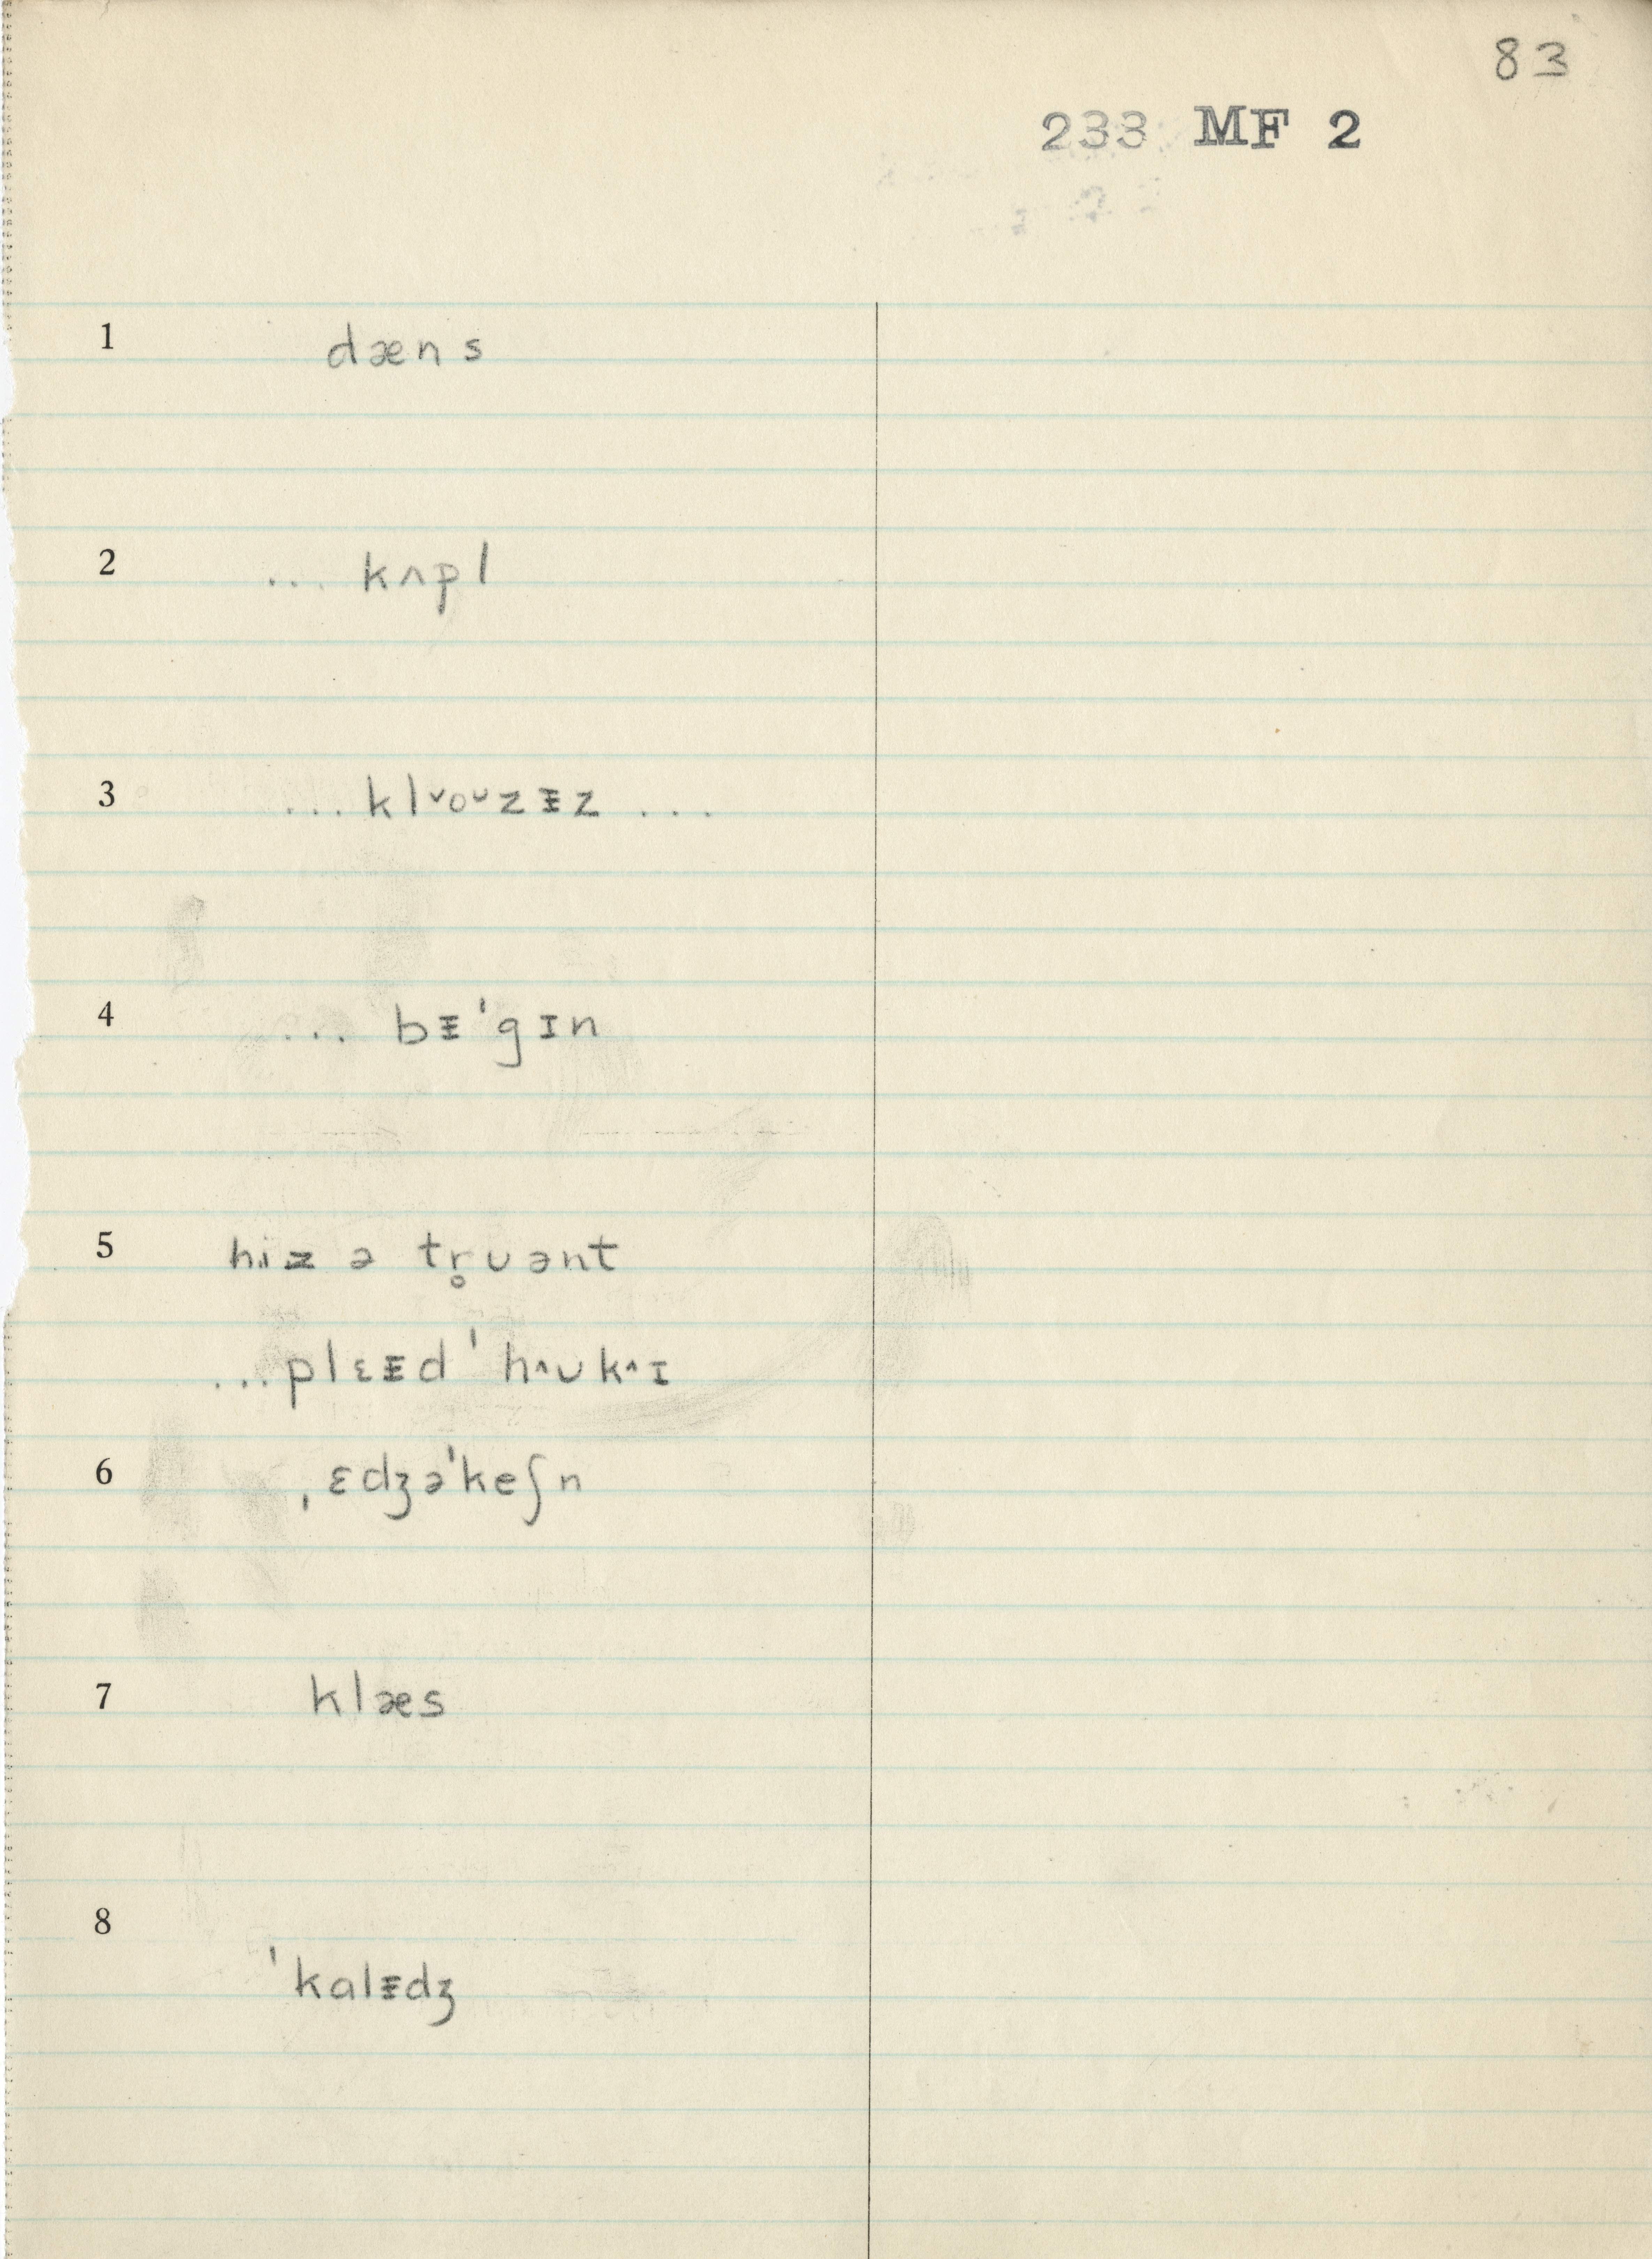 83
233 MF 2
1 dæns
2 ... kʌpl
3 ... kl˅oᴗzᵻz ...
4 ... bᵻˈgɪn
5 hiz ə tr̥uənt
...plɛᵻd ˈh^ᴜk^ɪ
6 ˌɛdʒəˈkeʃn
7 klæs
8
ˈkalᵻdʒ